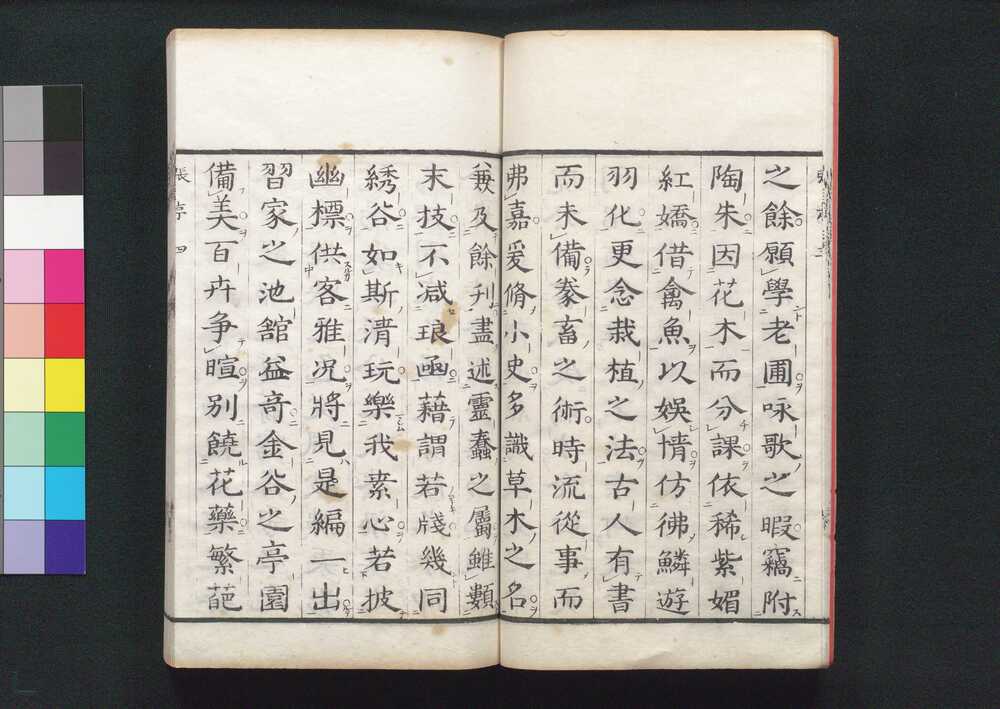 之餘願學老圃咏歌之暇竊附
陶朱因花木而分課依稀紫媚
紅嬌借禽魚以娛情仿彿鱗遊
羽化更念栽植之法古人有書
而未備豢畜之術時流從事而
弗嘉爰脩小史多識草木之名
兼及餘刋盡述靈蠢之屬雖類
末技不减琅函藉謂若牋幾同
綉谷如斯清玩樂我素心若披
幽標供客雅况將見是編一出
習家之池舘益奇金谷之亭園
備美百卉争暄別饒花藥繁葩
張序 四